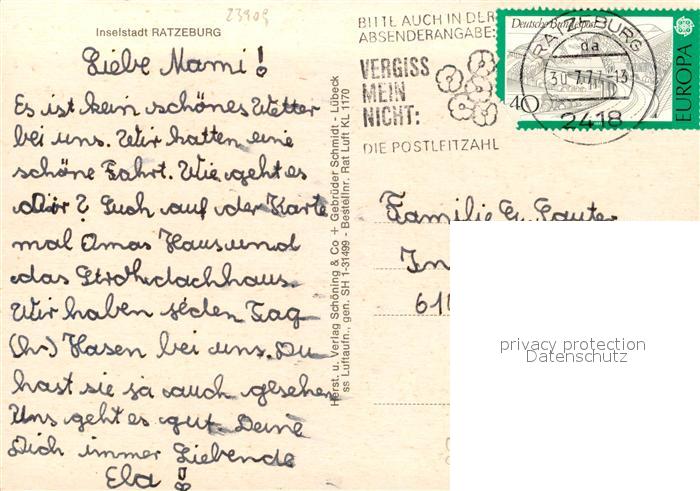 23909
Inselstadt RATZEBURG
Liebe Mami!
Es ist kein schönes Wetter
bei uns. Wir hatten eine
schöne Fahrt. Wie geht es
Dir? Such auf der Karte
mal Omas Haus und
das Strohdachhaus.
Wir haben jeden Tag
(hr) Hasen bei uns. Du
hast sie ja auch gesehen
Uns geht es gut. Deine
Dich immer Liebende
Ela
Herst. u. Verlag Schöning & Co + Gebrüder Schmidt - Lübeck
ss Luftaufn., gen. SH 1-31499 - Bestellnr. Rat Luft KL 1170
BITTE AUCH IN DER
ABSENDERANGABE:
VERGISS
MEIN
NICHT:
DIE POSTLEITZAHL
Deutsche Bundespost
40
EUROPA
RATZEBURG
da
30.-7.77-13
2418
Familie
61
privacy protection
Datenschutz